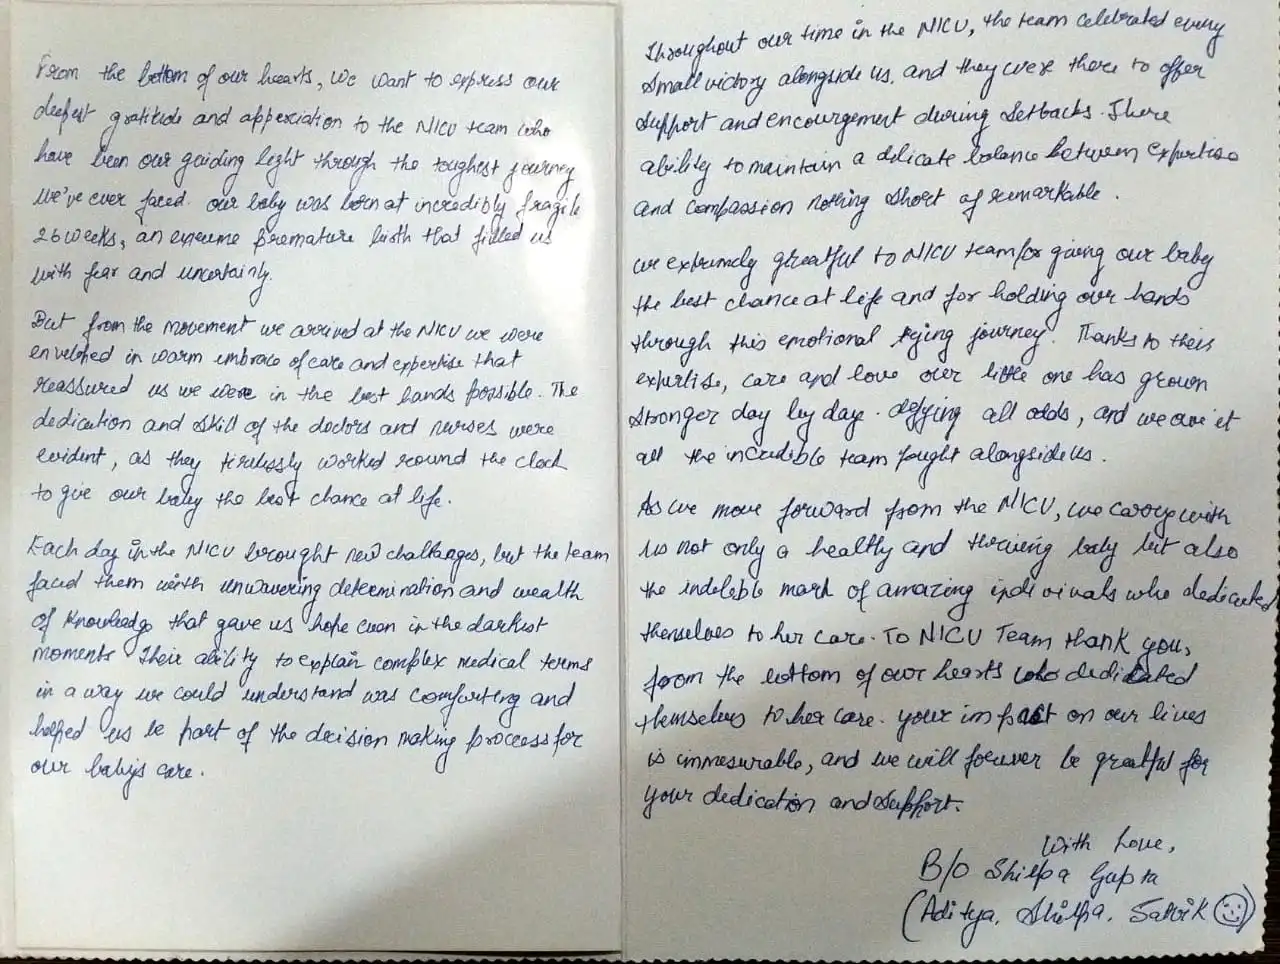 From the bottom of our hearts, We want to express our
deepest gratitude and apperciation to the NICU team who
have been our guiding light through the toughest journey
We've ever faced. our baby was born at incredibly fragile
26 weeks, an extreme premature birth that filled us
with fear and uncertainly.
But from the movement we arrived at the NICU we were
enveloped in warm embrace of care and expertise that
reassured us we were in the best hands possible. The
dedication and skill of the doctors and nurses were
evident, as they tirelessly worked round the clock
to give our baby the best chance at life.
Each day in the NICU brought new challanges, but the team
faced them with unwavering determination and wealth
of knowledge that gave us hope even in the darkest
moments Their ability to explain complex medical terms
in a way we could understand was comforting and
helped us be part of the decision making proccess for
our baby's care.
Throughout our time in the NICU, the team celebrated every
Small victory alongside us, and they were there to offer
support and encourgement during setbacks. There
ability to maintain a delicate balance between expertise
and compassion nothing short of remarkable.
We extrimely greatful to NICU team for giving our baby
the best chance at life and for holding our hands
through this emotional tying journey. Thanks to their
expertise, care and love our little one has grown
stronger day by day. defying all odds, and we owe it
all the incredible team fought alongside us.
As we move forward from the NICU, we carry with
us not only a healthy and thriving baby but also
the indeleble mark of amazing indivivals who dedicated
themselves to her care. To NICU Team thank you,
from the bottom of our hearts who dedicated
themselves to her care. your impact on our lives
is immesurable, and we will forever be greatful for
your dedication and support.
With Love,
B/O Shilpa Gupta
(Aditya, Shilpa, Satvik ☺)